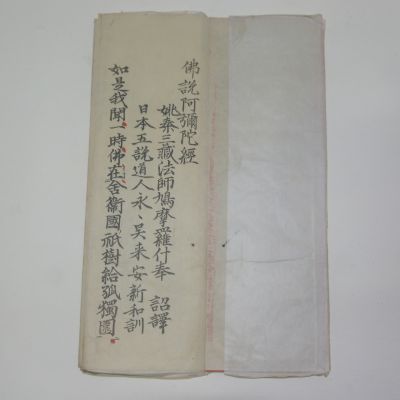 佛説阿彌陀經
姚秦三藏法師鳩摩羅什奉 詔譯
日本五説道人永〻吴来安新和訓
如是我聞一時佛在舍衞國祇樹給孤獨園